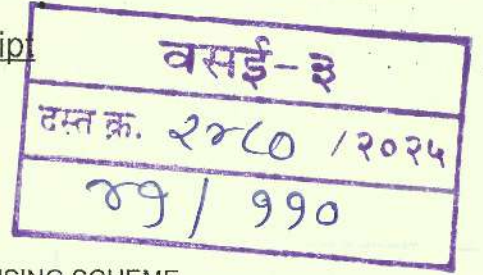 ipt
वसई-३
दस्त क्र. २४८० / २०२५
४१ / ११०
SING SCHEME